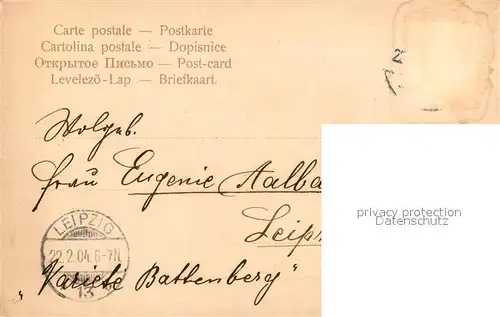 Carte postale — Postkarte
Cartolina postale — Dopisnice
Открытое Письмо — Post-card
Levelező-Lap — Briefkaart
Wolgeb.
Frau Eugenie Aalba
Leip
LEIPZIG
22.2.04.6-7N.
13
„Varieté Battenberg"
privacy protection
copyright protection